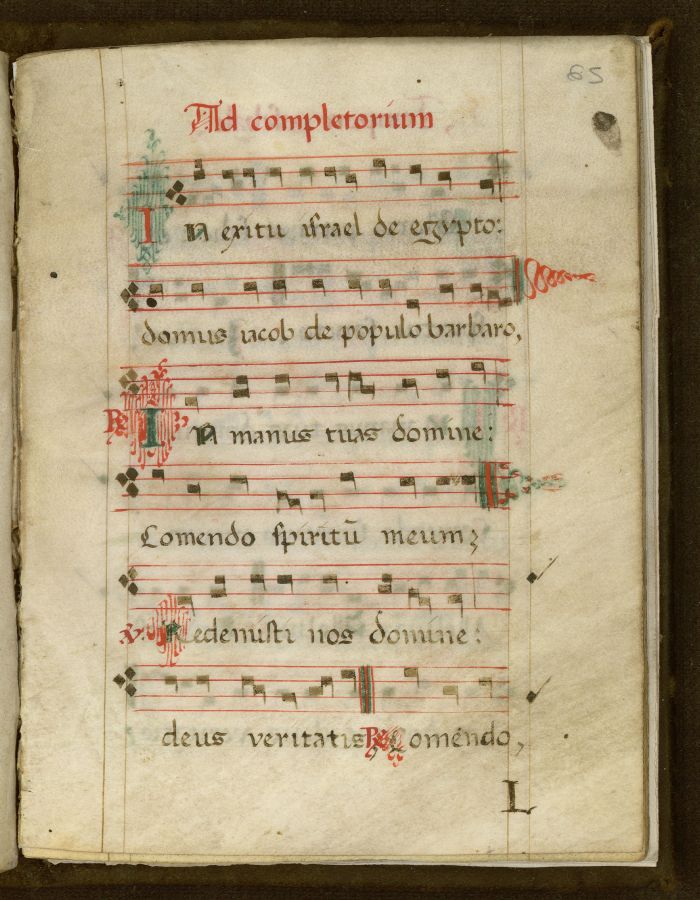 65
Ad completorium
In exitu israel de egypto:
domus iacob de populo barbaro,
R In manus tuas domine:
Comendo spiritū meum;
V. Redemisti nos domine:
deus veritatis R Comēndo,
L